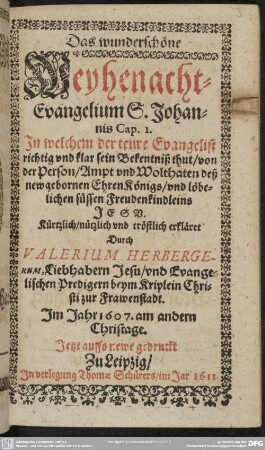 Das wunderschöne
Weyhenacht-
Evangelium S. Johan-
nis Cap. 1.
In welchem der tewre Evangelist
richtig vnd klar sein Bekentniß thut/von
der Person/Ampt vnd Wolthaten deß
newgebornen EhrenKönigs/vnd löbe-
lichen süssen Freudenkindleins
JESV.
Kürtzlich/nützlich vnd tröstlich erkläret
Durch
VALERIUM HERBERGE-
RUM, Liebhabern Jesu/vnd Evange-
lischen Predigern beym Kriplein Chri-
sti zur Frawenstadt.
Im Jahr 1607. am andern
Christage.
Jetzt auffs newe gedruckt
Zu Leipzig/
In verlegung Thomæ Schürers/im Jar 1611.
DFG